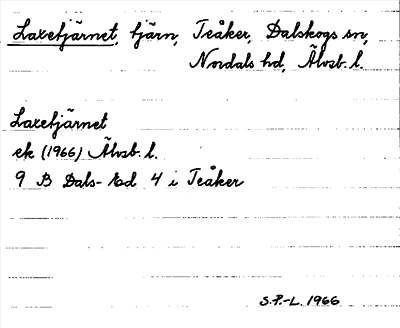 Laxetjärnet, tjärn, Teåker, Dalskogs sn,
Nordals hd, Älvsb. l.
Laxetjärnet
ek (1966) Älvsb. l.
9 B Dals-Ed 4 i Teåker
S.P.-L. 1966